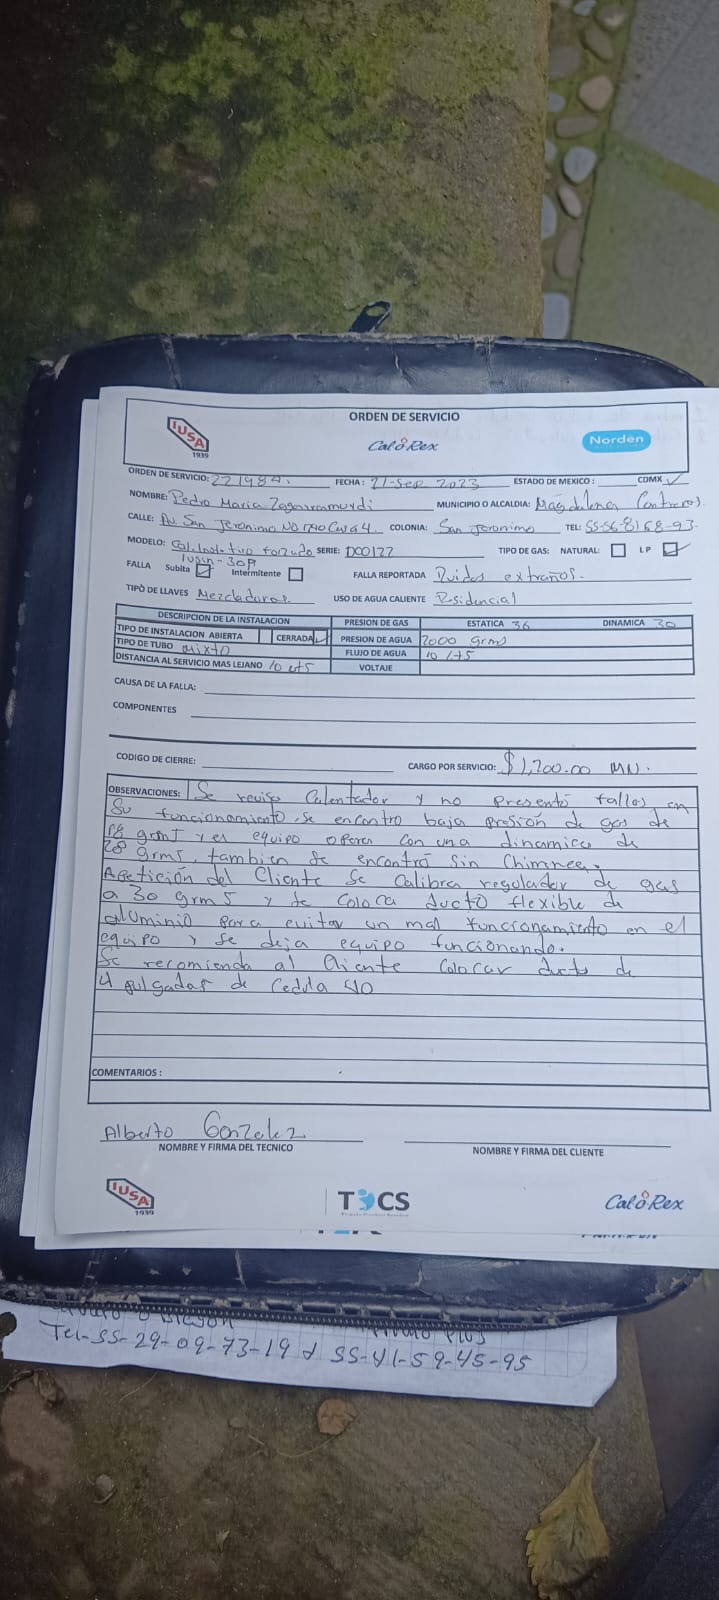 ORDEN DE SERVICIO
IUSA
1939
CalóRex
Norden
ORDEN DE SERVICIO: 221984. FECHA: 21-Sep 2023 ESTADO DE MEXICO: CDMX ✓
NOMBRE: Pedro Maria Zagarramurdi MUNICIPIO O ALCALDIA: Magdalena Contreras.
CALLE: Av. San Jeronimo NO 1740 Casa 4. COLONIA: San Jeronimo TEL: 55-56-8168-93.
MODELO: Cal. Inst. tiro forzado SERIE: D00127 TIPO DE GAS: NATURAL: LP ✓
FALLA Subita ✓ Intermitente FALLA REPORTADA Ruidos extraños.
TIPO DE LLAVES Mezcladoras USO DE AGUA CALIENTE Residencial
DESCRIPCION DE LA INSTALACION PRESION DE GAS ESTATICA 36 DINAMICA 30
TIPO DE INSTALACION ABIERTA CERRADA ✓ PRESION DE AGUA 2000 grms
TIPO DE TUBO mixto FLUJO DE AGUA 10 lts
DISTANCIA AL SERVICIO MAS LEJANO 10 VOLTAJE
CAUSA DE LA FALLA:
COMPONENTES
CODIGO DE CIERRE: CARGO POR SERVICIO: $1,200.00 MN.
OBSERVACIONES: Se reviso Calentador y no presentó fallos en
Su funcionamiento, se encontro baja presión de gas de
18 grms y el equipo opera con una dinamica de
28 grms, tambien se encontró sin Chimnea.
Apetición del Cliente Se Calibra regulador de gas
a 30 grms y se coloca ducto flexible de
aluminio para evitar un mal funcionamiento en el
equipo y se deja equipo funcionando.
Se recomienda al Cliente Colocar ducto de
4 pulgadas de Cedula 40
COMENTARIOS :
Alberto Gonzalez
NOMBRE Y FIRMA DEL TECNICO NOMBRE Y FIRMA DEL CLIENTE
IUSA
1939
TOCS
CalóRex
Tel-55-29-09-73-19 y 55-41-59-45-95